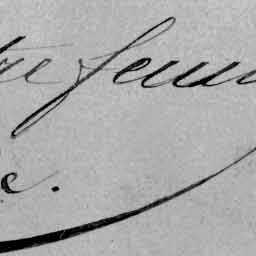 tre femm
e.